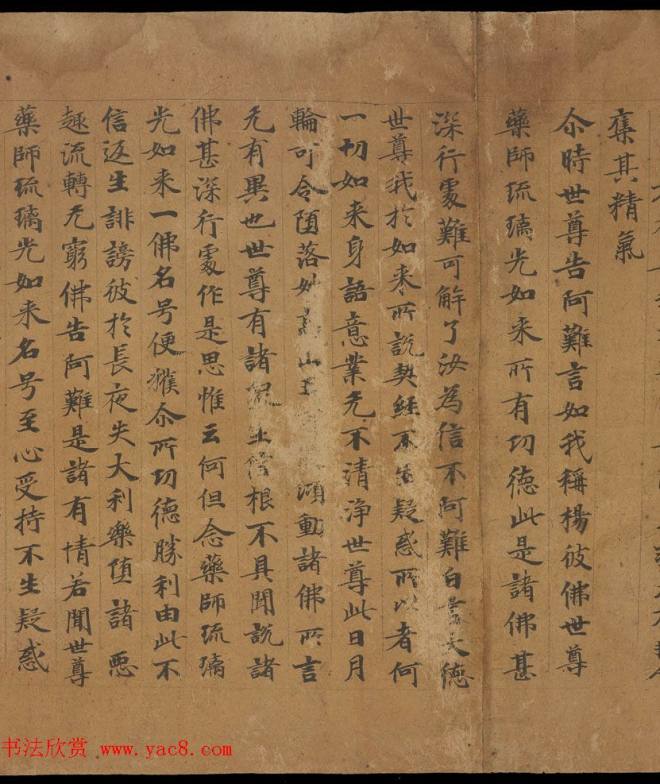 奪其精氣
尒時世尊告阿難言如我稱楊彼佛世尊
藥師琉璃光如来所有功德此是諸佛甚
深行處難可解了汝為信不阿難白言大德
世尊我於如来所說契經不生疑惑所以者何
一切如来身語意業无不清淨世尊此日月
輪可令墮落妙高山王傾動諸佛所言
无有異也世尊有諸衆生信根不具聞說諸
佛甚深行處作是思惟云何但念藥師琉璃
光如来一佛名号便獲尒所功德勝利由此不
信返生誹謗彼於長夜失大利樂墮諸惡
趣流轉无窮佛告阿難是諸有情若聞世尊
藥師琉璃光如来名号至心受持不生疑惑
书法欣赏 www.yac8.com